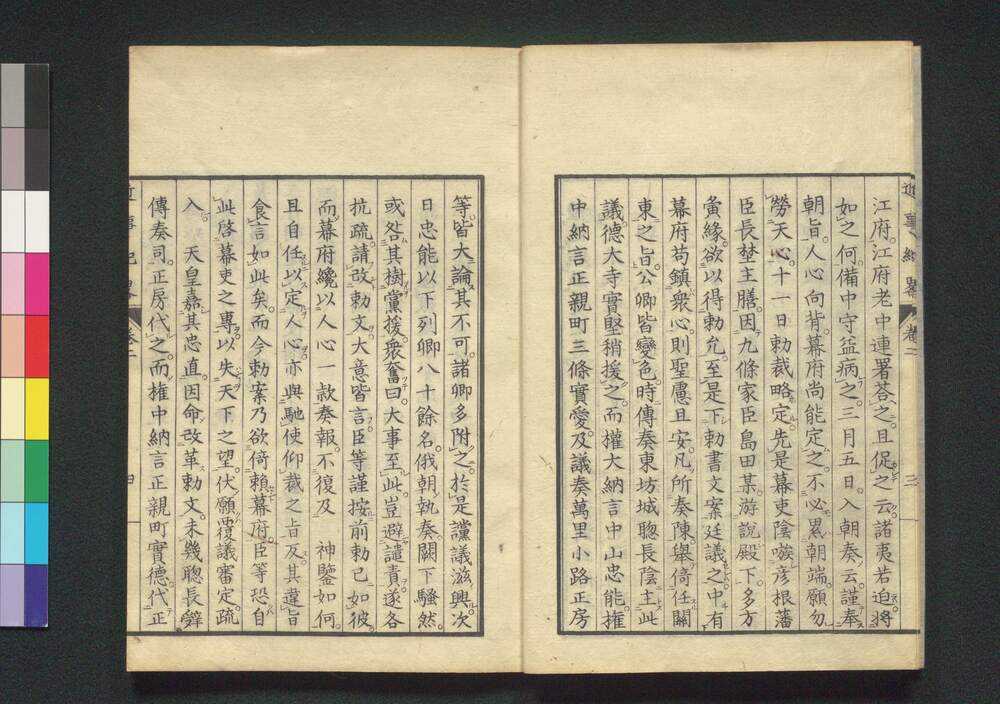 江府。江府老中連署荅之。且促之云。諸夷若迫。將
如之何。備中守益病之。三月五日。入朝奏云。謹奉
朝旨。人心向背。幕府尚能定之。不必累朝端。願勿
勞天心。十一日。勅裁略定。先是幕吏陰嗾彦根藩
臣長埜主膳。因九條家臣島田某。游說殿下。多方
夤緣。欲以得勅允。至是下勅書文案廷議之。中有
幕府苟鎮衆心。則聖慮且安。凡所奏陳。舉倚任關
東之旨。公卿皆變色。時傳奏東坊城聰長陰主此
議。德大寺實堅稍援之。而權大納言中山忠能。權
中納言正親町三條實愛。及議奏萬里小路正房
等。皆大論其不可。諸卿多附之。於是讜議滋興。次
日忠能以下列卿八十餘名。俄朝執奏。闕下騷然。
或咎其樹黨援。衆奮曰。大事至此。豈避譴責。遂各
抗疏。請改勅文。大意皆言。臣等謹按前勅已如彼。
而幕府纔以人心一款奏報。不復及 神鑒如何。
且自任以定人心。亦與馳使仰裁之旨反。其違旨
食言如此矣。而今勅案乃欲倚賴幕府。臣等恐自
此啓幕吏之專。以失天下之望。伏願覆議審定。疏
入 天皇嘉其忠直。因命改革勅文。未幾聰長辭
傳奏司。正房代之。而權中納言正親町實德。代正
近事紀畧 卷二 三
近事紀畧 卷二 四